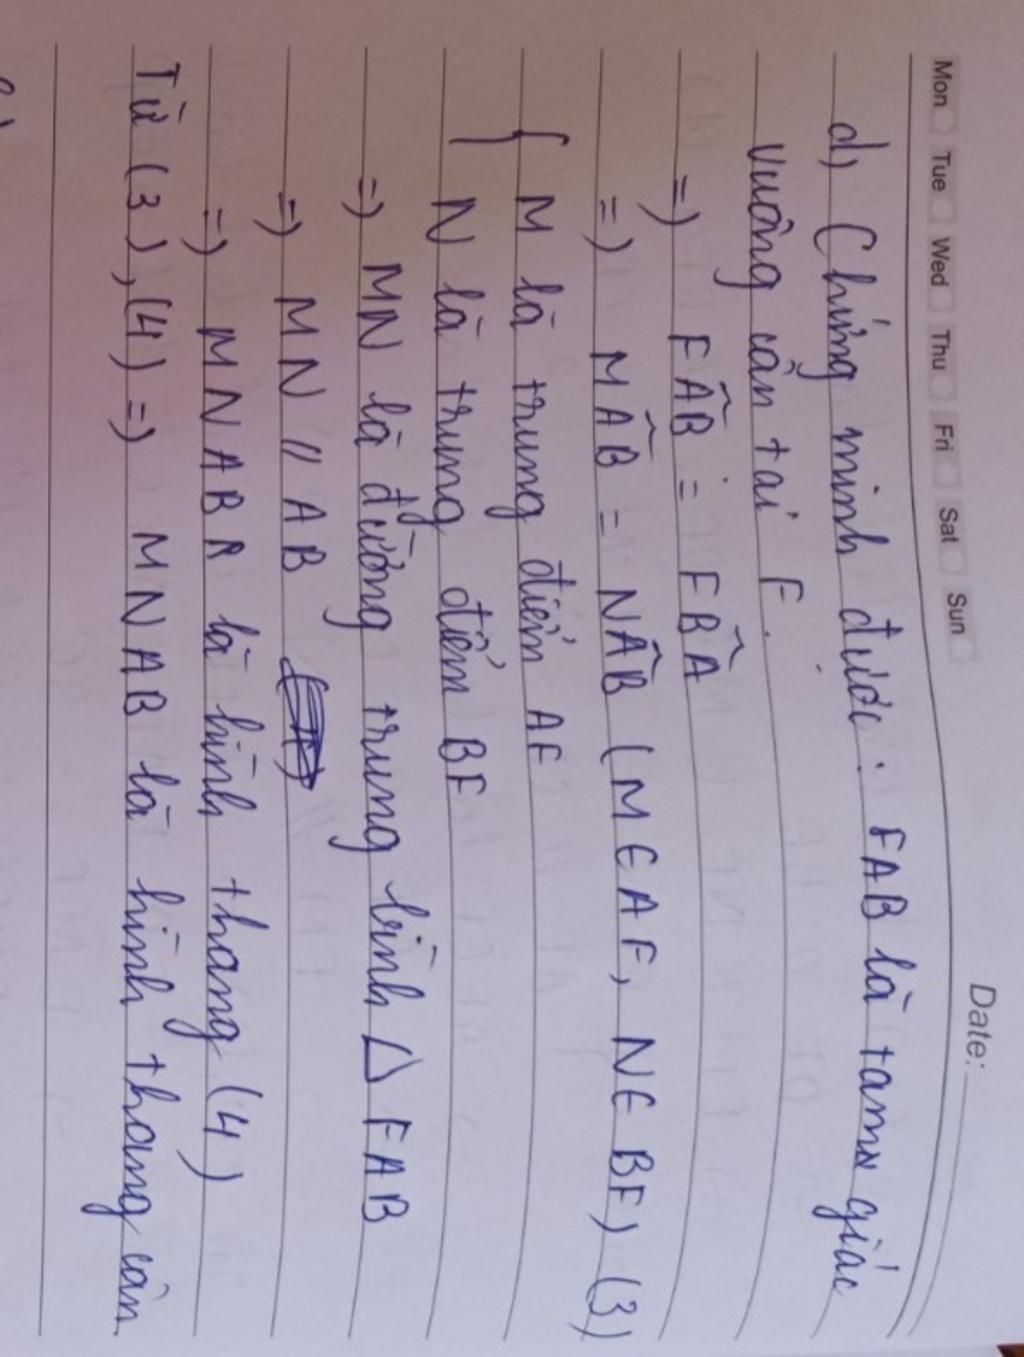 Mon Tue Wed Thu Fri Sat Sun
Date:
d) Chứng minh được: FAB là tam giác
vuông cân tại F.
=) FÂB = FB̂A
=) MÂB = NÂB (M ∈ AF, N ∈ BF) (3)
{ M là trung điểm AF
N là trung điểm BF
=) MN là đường trung bình △ FAB
=) MN // AB
=) MNAB là hình thang (4)
Từ (3), (4) =) MNAB là hình thang cân